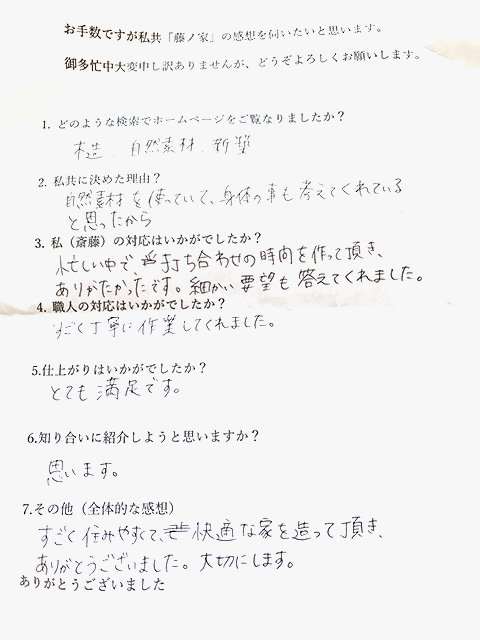 お手数ですが私共「藤ノ家」の感想を伺いたいと思います。
御多忙中大変申し訳ありませんが、どうぞよろしくお願いします。
1. どのような検索でホームページをご覧なりましたか？
木造．自然素材．新築
2. 私共に決めた理由？
自然素材を使っていて、身体の事も考えてくれている
と思ったから
3. 私（斎藤）の対応はいかがでしたか？
忙しい中で、打ち合わせの時間を作って頂き、
ありがたかったです。細かい要望も答えてくれました。
4. 職人の対応はいかがでしたか？
すごく丁寧に作業してくれました。
5.仕上がりはいかがでしたか？
とても満足です。
6.知り合いに紹介しようと思いますか？
思います。
7.その他（全体的な感想）
すごく住みやすくて、快適な家を造って頂き、
ありがとうございました。大切にします。
ありがとうございました